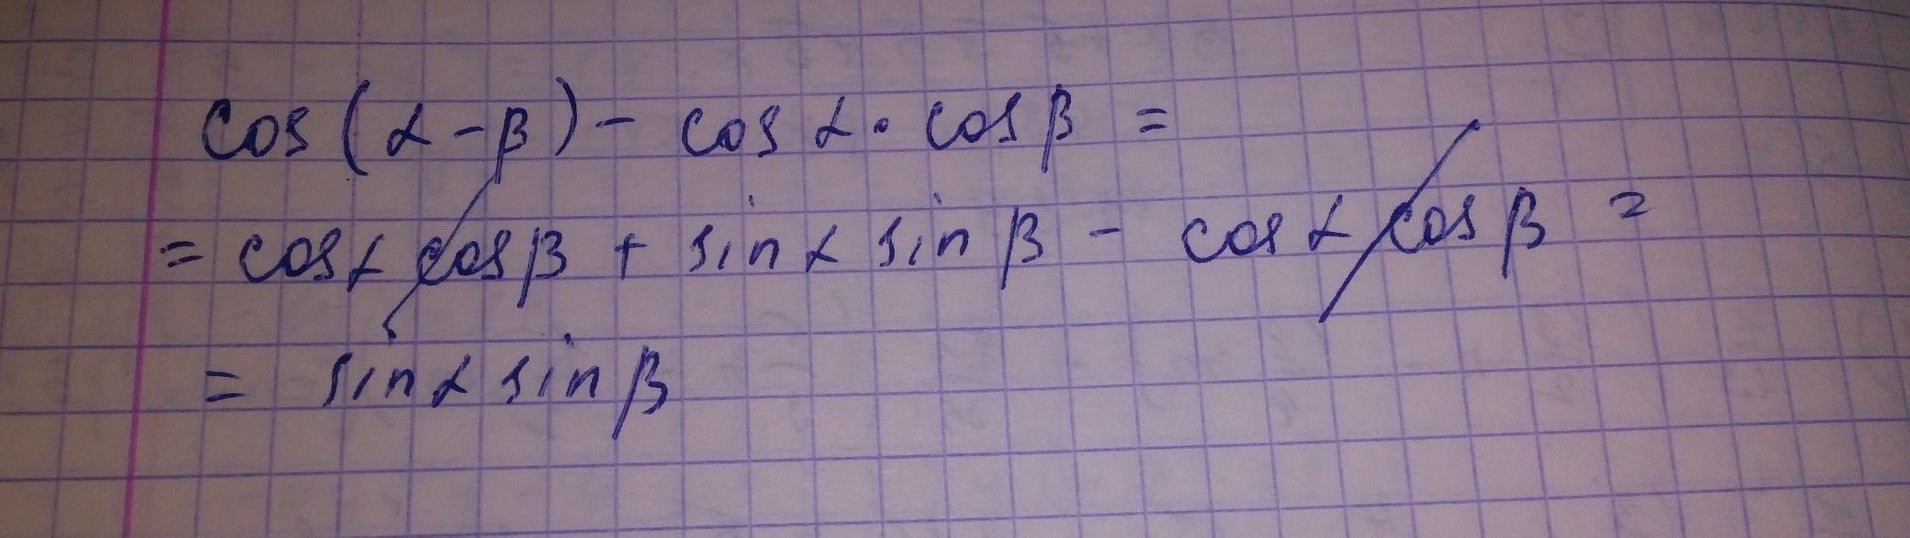 cos(α-β)- cosα·cosβ =
= cosα cosβ + sinα sinβ - cosα cosβ =
= sinα sinβ